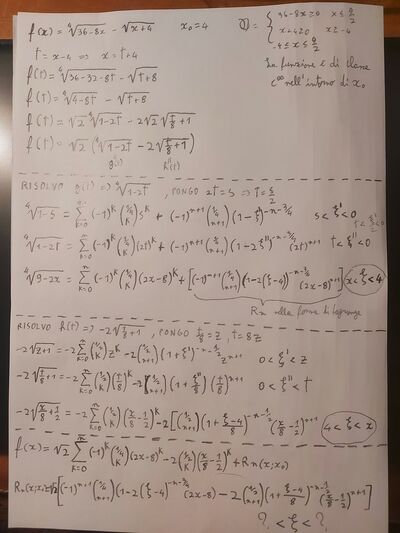 f(x) = ⁴√(36-8x) - √(x+4)    x₀=4
D = { 36-8x≥0  x≤9/2
{ x+4≥0  x≥-4
-4≤x≤9/2
t = x-4 => x = t+4
f(t) = ⁴√(36-32-8t) - √(t+8)
La funzione è di classe
C^∞ nell'intorno di x₀
f(t) = ⁴√(4-8t) - √(t+8)
f(t) = √2 ⁴√(1-2t) - 2√2 √(t/8+1)
f(t) = √2 (⁴√(1-2t) - 2√(t/8+1))
g(t)    h(t)
RISOLVO g(t) => ⁴√(1-2t), PONGO 2t=s => t=s/2
⁴√(1-s) = Σ_{k=0}^{n} (-1)^k (1/4 k) s^k + (-1)^{n+1} (1/4 n+1) (1-ξ')^{-n-3/4}    s<ξ'<0
⁴√(1-2t) = Σ_{k=0}^{n} (-1)^k (1/4 k) (2t)^k + (-1)^{n+1} (1/4 n+1) (1-2ξ'')^{-n-3/4} (2t)^{n+1}    t<ξ''<0
⁴√(9-2x) = Σ_{k=0}^{n} (-1)^k (1/4 k) (2x-8)^k + [(-1)^{n+1} (1/4 n+1) (1-2(ξ-4))^{-n-3/4} (2x-8)^{n+1}]    x<ξ<4
Rn nella forma di Lagrange
RISOLVO h(t) => -2√(t/8+1), PONGO t/8=z, t=8z
-2√(z+1) = -2 Σ_{k=0}^{n} (1/2 k) z^k - 2 (1/2 n+1) (1+ξ')^{-n-1/2} z^{n+1}    0<ξ'<z
-2√(t/8+1) = -2 Σ_{k=0}^{n} (1/2 k) (t/8)^k - 2 (1/2 n+1) (1+ξ''/8)^{-n-1/2} (t/8)^{n+1}    0<ξ''<t
-2√(x/8+1/2) = -2 Σ_{k=0}^{n} (1/2 k) (x/8-1/2)^k - 2 [(1/2 n+1) (1+(ξ-4)/8)^{-n-1/2} (x/8-1/2)^{n+1}]    4<ξ<x
f(x) = √2 Σ_{k=0}^{n} (-1)^k (1/4 k) (2x-8)^k - 2 (1/2 k) (x/8-1/2)^k + Rn(x;x₀)
Rn(x;x₀) = √2 [(-1)^{n+1} (1/4 n+1) (1-2(ξ-4))^{-n-3/4} (2x-8) - 2 (1/2 n+1) (1+(ξ-4)/8)^{-n-1/2} (x/8-1/2)^{n+1}]
? < ξ < ?